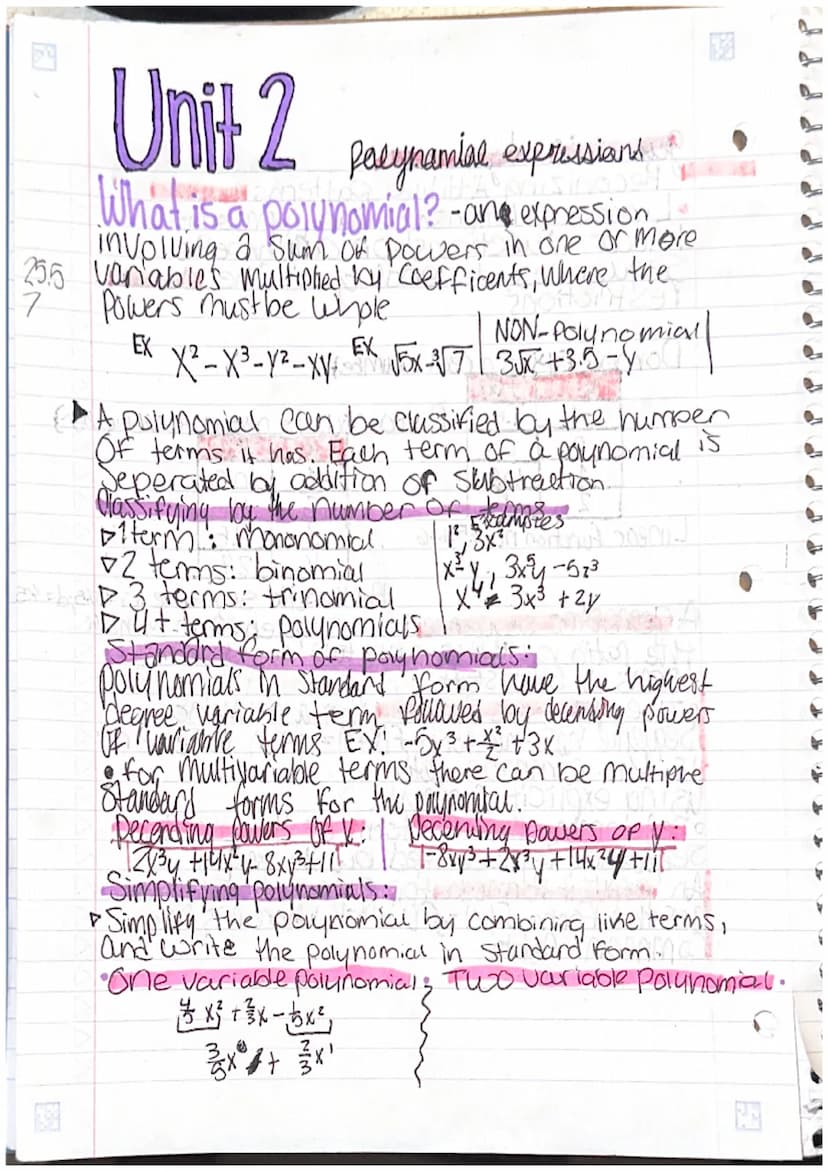 Unit 2
Polynamial expressions
What is a polynomial? - an expression
involving a sum of powers in one or more
variables multiplied by Coefficents, Where the
Powers must be whole
25.5
7
EX x² - x³ - y² - xy
EX √5x - ³√7
NON-Polynomial
3√x + 3.5 - y
A polynomial can be classified by the number
Of terms it has. Each term of a poynomial is
Seperated by addition or Subtraction.
Classifying by the number of terms
Examples
1 term : monomial
2 terms: binomial
3x⁵y - 5z³
3 terms: trinomial
x⁴ - 3x³ + 2y
4+ terms; polynomials
Standard form of polynomials:
Polynomials in Standard form have the highest
degree variable term followed by decending powers
Of variable terms EX: -5x³ + x²/2 + 3x
• for multivariable terms there can be multiple
Standard forms for the polynomial.
Decending powers of x:
Decending powers of y:
2x³y + 14x²y - 8xy³ + 11
-8xy³ + 2x³y + 14x²y + 11
Simplifying polynomials:
Simplify the polynomial by combining like terms,
and write the polynomial in Standard form.
•One variable polynomial:
Two variable Polynomial.
4/5 x² + 2/3x - 1/5x²
3/5x² + 2/3x¹